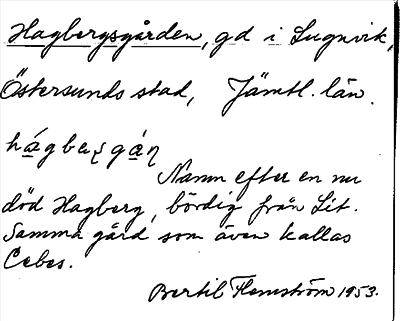 Hagbergsgården, gd i Lugnvik,
Östersunds stad, Jämtl. län.
Namn efter en nu
död Hagberg, bördig från Lit.
Samma gård som även kallas
Cebes.
Bertil Flemström 1953.